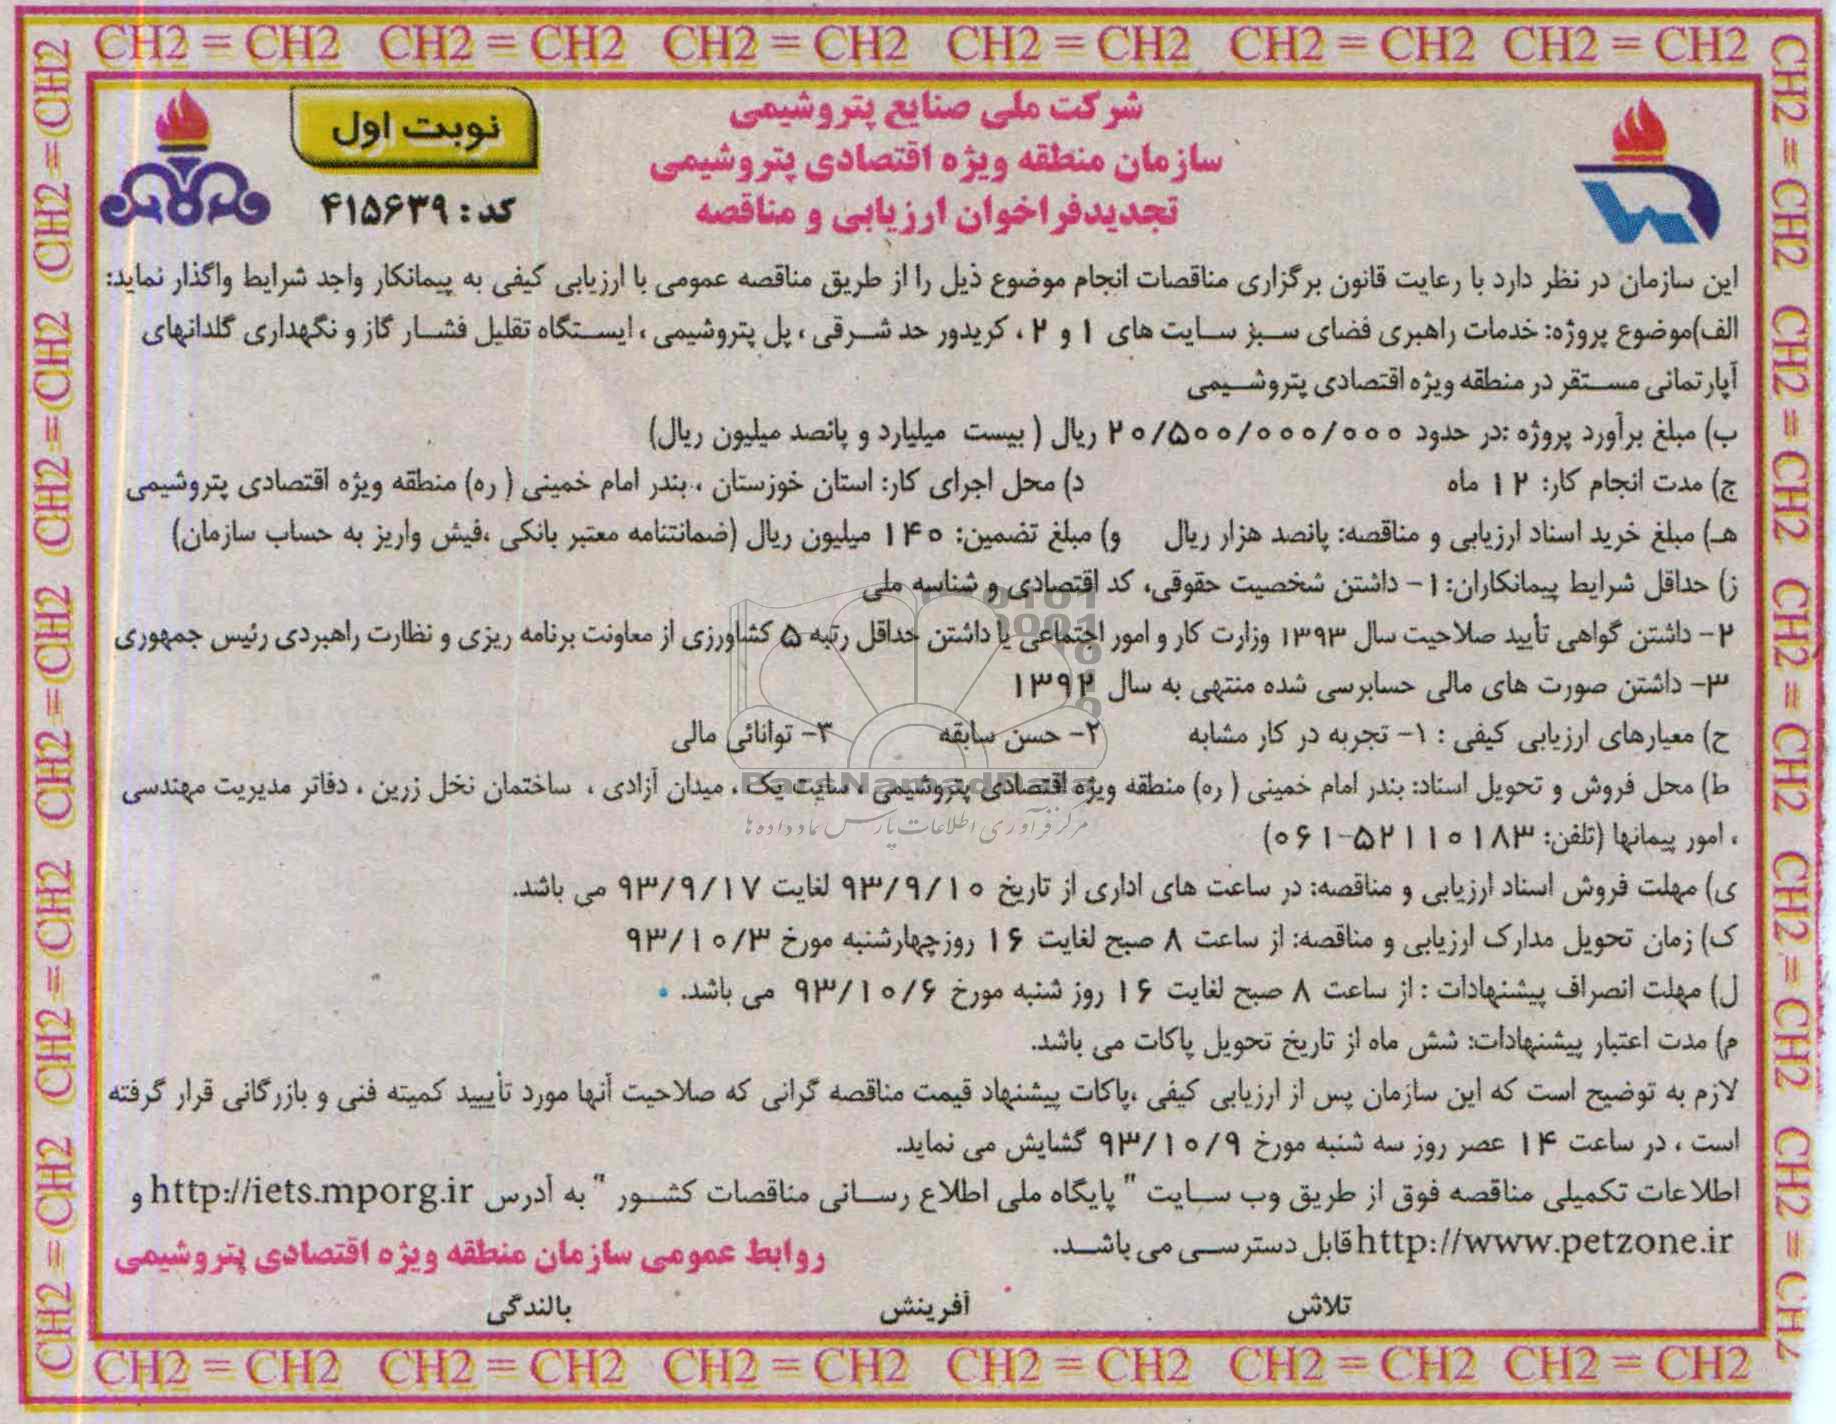 CH2 = CH2 CH2 = CH2 CH2 = CH2 CH2 = CH2 CH2 = CH2 CH2 = CH2
شرکت ملی صنایع پتروشیمی
سازمان منطقه ویژه اقتصادی پتروشیمی
تجدیدفراخوان ارزیابی و مناقصه
نوبت اول
کد: ۴۱۵۶۳۹
این سازمان در نظر دارد با رعایت قانون برگزاری مناقصات انجام موضوع ذیل را از طریق مناقصه عمومی با ارزیابی کیفی به پیمانکار واجد شرایط واگذار نماید:
الف)موضوع پروژه: خدمات راهبری فضای سبز سایت های ۱ و ۲ ، کریدور حد شرقی ، پل پتروشیمی ، ایستگاه تقلیل فشار گاز و نگهداری گلدانهای
آپارتمانی مستقر در منطقه ویژه اقتصادی پتروشیمی
ب) مبلغ برآورد پروژه :در حدود ۲۰/۵۰۰/۰۰۰/۰۰۰ ریال ( بیست میلیارد و پانصد میلیون ریال)
ج) مدت انجام کار: ۱۲ ماه د) محل اجرای کار: استان خوزستان ، بندر امام خمینی ( ره) منطقه ویژه اقتصادی پتروشیمی
هـ) مبلغ خرید اسناد ارزیابی و مناقصه: پانصد هزار ریال و) مبلغ تضمین: ۱۴۰ میلیون ریال (ضمانتنامه معتبر بانکی ،فیش واریز به حساب سازمان)
ز) حداقل شرایط پیمانکاران: ۱- داشتن شخصیت حقوقی، کد اقتصادی و شناسه ملی
۲- داشتن گواهی تأیید صلاحیت سال ۱۳۹۳ وزارت کار و امور اجتماعی یا داشتن حداقل رتبه ۵ کشاورزی از معاونت برنامه ریزی و نظارت راهبردی رئیس جمهوری
۳- داشتن صورت های مالی حسابرسی شده منتهی به سال ۱۳۹۲
ح) معیارهای ارزیابی کیفی : ۱- تجربه در کار مشابه ۲- حسن سابقه ۳- توانائی مالی
ط) محل فروش و تحویل اسناد: بندر امام خمینی ( ره) منطقه ویژه اقتصادی پتروشیمی ، سایت یک ، میدان آزادی ، ساختمان نخل زرین ، دفاتر مدیریت مهندسی
، امور پیمانها (تلفن: ۵۲۱۱۰۱۸۳-۰۶۱)
ی) مهلت فروش اسناد ارزیابی و مناقصه: در ساعت های اداری از تاریخ ۹۳/۹/۱۰ لغایت ۹۳/۹/۱۷ می باشد.
ک) زمان تحویل مدارک ارزیابی و مناقصه: از ساعت ۸ صبح لغایت ۱۶ روزچهارشنبه مورخ ۹۳/۱۰/۳
ل) مهلت انصراف پیشنهادات : از ساعت ۸ صبح لغایت ۱۶ روز شنبه مورخ ۹۳/۱۰/۶ می باشد.
م) مدت اعتبار پیشنهادات: شش ماه از تاریخ تحویل پاکات می باشد.
لازم به توضیح است که این سازمان پس از ارزیابی کیفی ،پاکات پیشنهاد قیمت مناقصه گرانی که صلاحیت آنها مورد تأیید کمیته فنی و بازرگانی قرار گرفته
است ، در ساعت ۱۴ عصر روز سه شنبه مورخ ۹۳/۱۰/۹ گشایش می نماید.
اطلاعات تکمیلی مناقصه فوق از طریق وب سایت " پایگاه ملی اطلاع رسانی مناقصات کشور " به آدرس http://iets.mporg.ir و
http://www.petzone.ir قابل دسترسی می باشد.
روابط عمومی سازمان منطقه ویژه اقتصادی پتروشیمی
تلاش آفرینش بالندگی
ParsNamadData
مرکز فرآوری اطلاعات پارس نماد داده ها
CH2 = CH2 CH2 = CH2 CH2 = CH2 CH2 = CH2 CH2 = CH2 CH2 = CH2
CH2 = CH2 CH2 = CH2 CH2 = CH2 CH2 = CH2 CH2 = CH2
CH2 = CH2 CH2 = CH2 CH2 = CH2 CH2 = CH2 CH2 = CH2